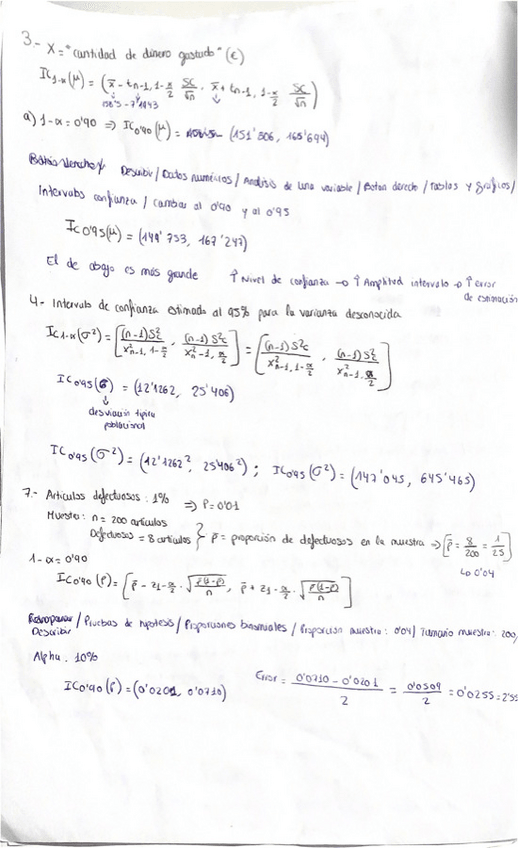 3.- X = "cantidad de dinero gastado" (€)
IC1-α(μ) = (x̄ - tn-1, 1-α/2 SC/√n , x̄ + tn-1, 1-α/2 SC/√n)
a) 1-α = 0'90 ⇒ IC0'90(μ) = (151'306, 165'694)
Describir / Datos numéricos / Análisis de una variable / Boton derecho / Tablas y gráficos /
Intervalos confianza / cambiar al 0'90 y al 0'95
IC0'95(μ) = (149'753, 167'247)
El de abajo es más grande ↑ Nivel de confianza → ↑ Amplitud intervalo → ↑ error
de estimación
4.- Intervalo de confianza estimado al 95% para la varianza desconocida
IC1-α(σ²) = [(n-1)S²c / χ²n-1, 1-α/2 , (n-1)S²c / χ²n-1, α/2] = [(n-1)S²c / χ²n-1, 1-α/2 , (n-1)S²c / χ²n-1, α/2]
IC0'95(σ) = (12'1262, 25'406)
↓
desviación típica
poblacional
IC0'95(σ²) = (12'1262², 25'406²) ; IC0'95(σ²) = (147'045, 645'465)
7.- Artículos defectuosos : 1% ⇒ P = 0'01
Muestra : n = 200 artículos
Defectuosos = 8 artículos } p̄ = proporción de defectuosos en la muestra → [p̄ = 8/200 = 1/25]
↳ 0'04
1-α = 0'90
IC0'90(p) = [p̄ - z1-α/2 · √(p̄(1-p̄)/n) , p̄ + z1-α/2 · √(p̄(1-p̄)/n)]
Describir / Pruebas de hipótesis / Proporciones binomiales / Proporción muestra : 0'04 / Tamaño muestra : 200,
Alpha : 10%
IC0'90(p) = (0'0201, 0'0710)
Error = (0'0710 - 0'0201)/2 = 0'0509/2 = 0'0255 = 2'55